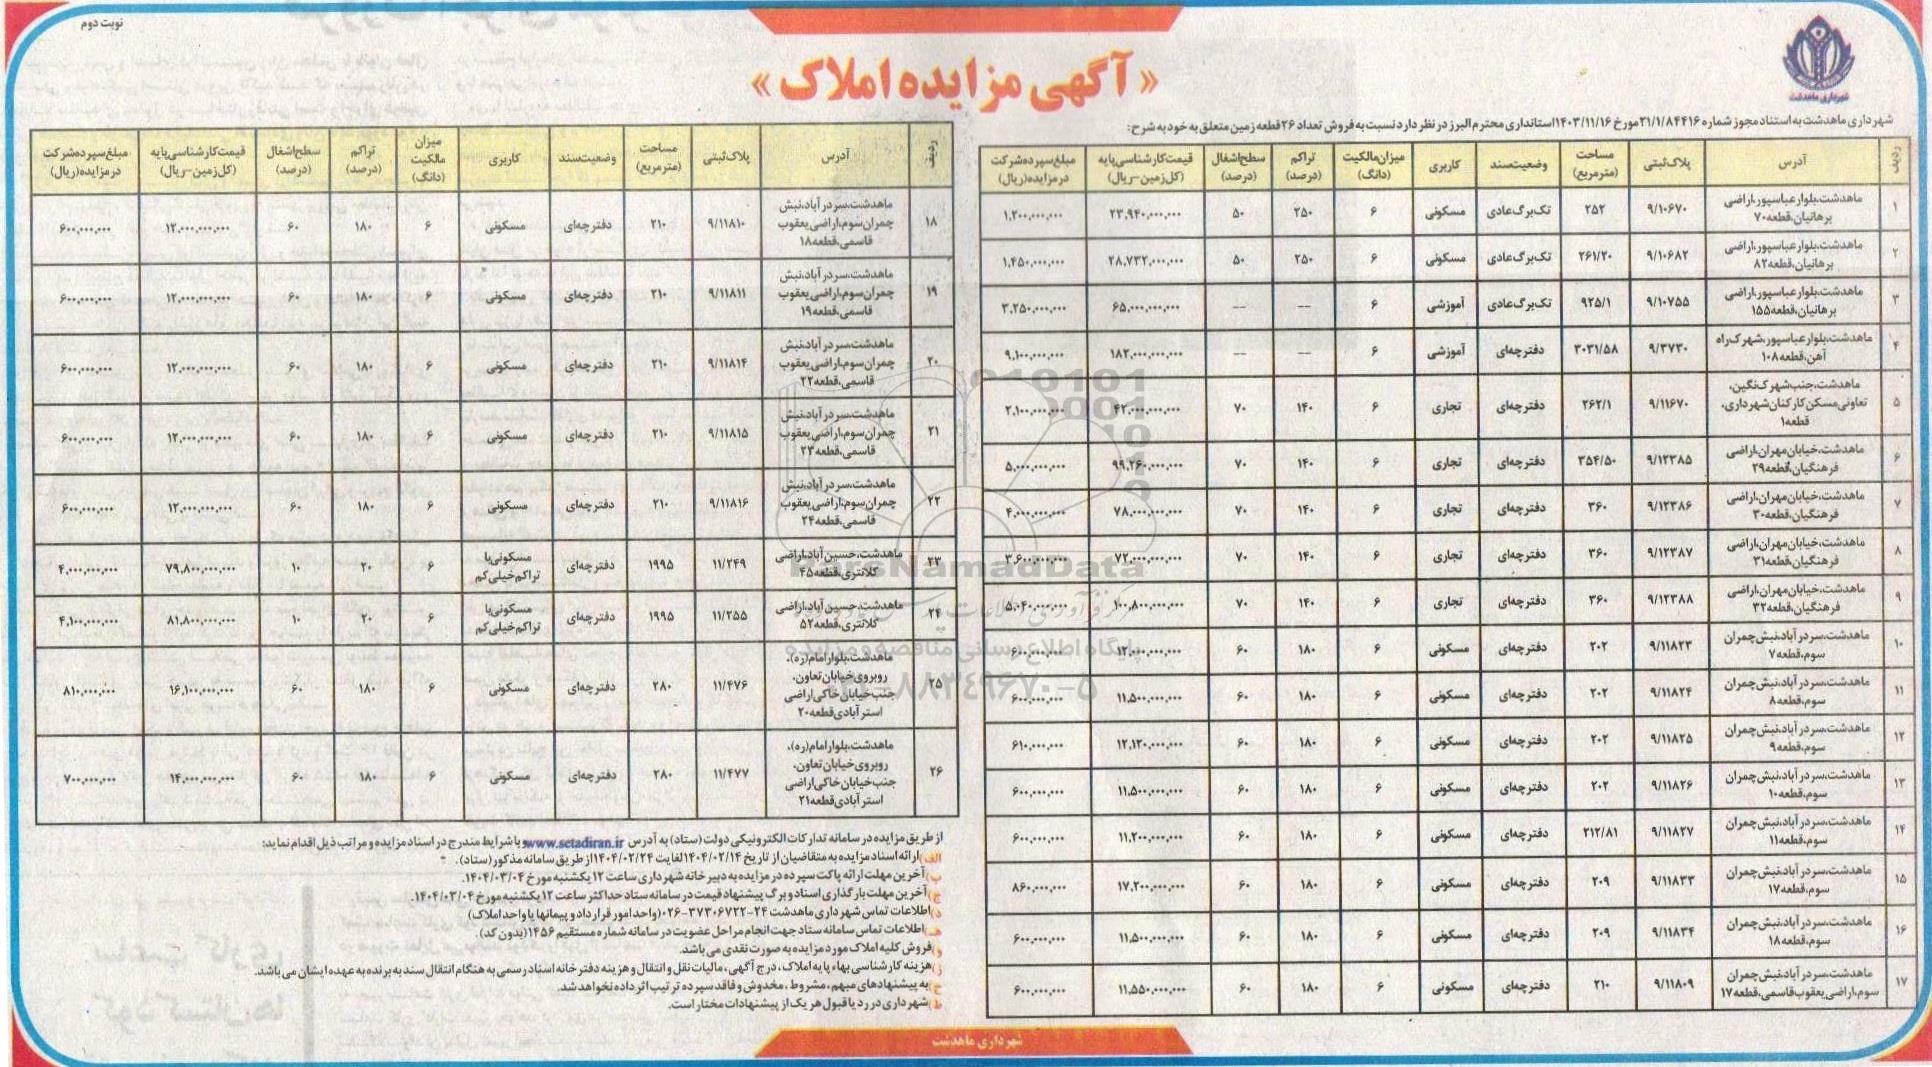 نوبت دوم
شهرداری ماهدشت
« آگهی مزایده املاک »
شهرداری ماهدشت به استناد مجوز شماره ۲۱/۱/۸۴۴۱۶ مورخ ۱۴۰۳/۱۱/۱۶ استانداری محترم البرز در نظر دارد نسبت به فروش تعداد ۲۶ قطعه زمین متعلق به خود به شرح:
ردیف | آدرس | پلاک ثبتی | مساحت (مترمربع) | وضعیت سند | کاربری | میزان مالکیت (دانگ) | تراکم (درصد) | سطح اشغال (درصد) | قیمت کارشناسی پایه (کل زمین-ریال) | مبلغ سپرده شرکت در مزایده (ریال)
۱ | ماهدشت، بلوار عباسپور، اراضی برهانیان، قطعه ۷۰ | ۹/۱۰۶۷۰ | ۲۵۲ | تک برگ عادی | مسکونی | ۶ | ۲۵۰ | ۵۰ | ۲۳,۹۴۰,۰۰۰,۰۰۰ | ۱,۲۰۰,۰۰۰,۰۰۰
۲ | ماهدشت، بلوار عباسپور، اراضی برهانیان، قطعه ۸۲ | ۹/۱۰۶۸۲ | ۲۶۱/۲۰ | تک برگ عادی | مسکونی | ۶ | ۲۵۰ | ۵۰ | ۲۸,۷۳۲,۰۰۰,۰۰۰ | ۱,۴۵۰,۰۰۰,۰۰۰
۳ | ماهدشت، بلوار عباسپور، اراضی برهانیان، قطعه ۱۵۵ | ۹/۱۰۷۵۵ | ۹۲۵/۱ | تک برگ عادی | آموزشی | ۶ | -- | -- | ۶۵,۰۰۰,۰۰۰,۰۰۰ | ۳,۲۵۰,۰۰۰,۰۰۰
۴ | ماهدشت، بلوار عباسپور، شهرک راه آهن، قطعه ۱۰۸ | ۹/۳۷۳۰ | ۳۰۳۱/۵۸ | دفترچه‌ای | آموزشی | ۶ | -- | -- | ۱۸۲,۰۰۰,۰۰۰,۰۰۰ | ۹,۱۰۰,۰۰۰,۰۰۰
۵ | ماهدشت، جنب شهرک نگین، تعاونی مسکن کارکنان شهرداری، قطعه ۱ | ۹/۱۱۶۷۰ | ۲۶۲/۱ | دفترچه‌ای | تجاری | ۶ | ۱۴۰ | ۷۰ | ۴۲,۰۰۰,۰۰۰,۰۰۰ | ۲,۱۰۰,۰۰۰,۰۰۰
۶ | ماهدشت، خیابان مهران، اراضی فرهنگیان، قطعه ۲۹ | ۹/۱۲۳۸۵ | ۳۵۴/۵۰ | دفترچه‌ای | تجاری | ۶ | ۱۴۰ | ۷۰ | ۹۹,۲۶۰,۰۰۰,۰۰۰ | ۵,۰۰۰,۰۰۰,۰۰۰
۷ | ماهدشت، خیابان مهران، اراضی فرهنگیان، قطعه ۳۰ | ۹/۱۲۳۸۶ | ۳۶۰ | دفترچه‌ای | تجاری | ۶ | ۱۴۰ | ۷۰ | ۷۸,۰۰۰,۰۰۰,۰۰۰ | ۴,۰۰۰,۰۰۰,۰۰۰
۸ | ماهدشت، خیابان مهران، اراضی فرهنگیان، قطعه ۳۱ | ۹/۱۲۳۸۷ | ۳۶۰ | دفترچه‌ای | تجاری | ۶ | ۱۴۰ | ۷۰ | ۷۲,۰۰۰,۰۰۰,۰۰۰ | ۳,۶۰۰,۰۰۰,۰۰۰
۹ | ماهدشت، خیابان مهران، اراضی فرهنگیان، قطعه ۳۲ | ۹/۱۲۳۸۸ | ۳۶۰ | دفترچه‌ای | تجاری | ۶ | ۱۴۰ | ۷۰ | ۱۰۰,۸۰۰,۰۰۰,۰۰۰ | ۵,۰۴۰,۰۰۰,۰۰۰
۱۰ | ماهدشت، سردرآباد، نبش چمران سوم، قطعه ۷ | ۹/۱۱۸۲۳ | ۲۰۲ | دفترچه‌ای | مسکونی | ۶ | ۱۸۰ | ۶۰ | ۱۲,۰۰۰,۰۰۰,۰۰۰ | ۶۰۰,۰۰۰,۰۰۰
۱۱ | ماهدشت، سردرآباد، نبش چمران سوم، قطعه ۸ | ۹/۱۱۸۲۴ | ۲۰۲ | دفترچه‌ای | مسکونی | ۶ | ۱۸۰ | ۶۰ | ۱۱,۵۰۰,۰۰۰,۰۰۰ | ۶۰۰,۰۰۰,۰۰۰
۱۲ | ماهدشت، سردرآباد، نبش چمران سوم، قطعه ۹ | ۹/۱۱۸۲۵ | ۲۰۲ | دفترچه‌ای | مسکونی | ۶ | ۱۸۰ | ۶۰ | ۱۲,۱۲۰,۰۰۰,۰۰۰ | ۶۱۰,۰۰۰,۰۰۰
۱۳ | ماهدشت، سردرآباد، نبش چمران سوم، قطعه ۱۰ | ۹/۱۱۸۲۶ | ۲۰۲ | دفترچه‌ای | مسکونی | ۶ | ۱۸۰ | ۶۰ | ۱۱,۵۰۰,۰۰۰,۰۰۰ | ۶۰۰,۰۰۰,۰۰۰
۱۴ | ماهدشت، سردرآباد، نبش چمران سوم، قطعه ۱۱ | ۹/۱۱۸۲۷ | ۲۱۲/۸۱ | دفترچه‌ای | مسکونی | ۶ | ۱۸۰ | ۶۰ | ۱۱,۲۰۰,۰۰۰,۰۰۰ | ۶۰۰,۰۰۰,۰۰۰
۱۵ | ماهدشت، سردرآباد، نبش چمران سوم، قطعه ۱۷ | ۹/۱۱۸۳۳ | ۲۰۹ | دفترچه‌ای | مسکونی | ۶ | ۱۸۰ | ۶۰ | ۱۷,۲۰۰,۰۰۰,۰۰۰ | ۸۶۰,۰۰۰,۰۰۰
۱۶ | ماهدشت، سردرآباد، نبش چمران سوم، قطعه ۱۸ | ۹/۱۱۸۳۴ | ۲۰۹ | دفترچه‌ای | مسکونی | ۶ | ۱۸۰ | ۶۰ | ۱۱,۵۰۰,۰۰۰,۰۰۰ | ۶۰۰,۰۰۰,۰۰۰
۱۷ | ماهدشت، سردرآباد، نبش چمران سوم، اراضی یعقوب قاسمی، قطعه ۱۷ | ۹/۱۱۸۰۹ | ۲۱۰ | دفترچه‌ای | مسکونی | ۶ | ۱۸۰ | ۶۰ | ۱۱,۵۵۰,۰۰۰,۰۰۰ | ۶۰۰,۰۰۰,۰۰۰
ردیف | آدرس | پلاک ثبتی | مساحت (مترمربع) | وضعیت سند | کاربری | میزان مالکیت (دانگ) | تراکم (درصد) | سطح اشغال (درصد) | قیمت کارشناسی پایه (کل زمین-ریال) | مبلغ سپرده شرکت در مزایده (ریال)
۱۸ | ماهدشت، سردرآباد، نبش چمران سوم، اراضی یعقوب قاسمی، قطعه ۱۸ | ۹/۱۱۸۱۰ | ۲۱۰ | دفترچه‌ای | مسکونی | ۶ | ۱۸۰ | ۶۰ | ۱۲,۰۰۰,۰۰۰,۰۰۰ | ۶۰۰,۰۰۰,۰۰۰
۱۹ | ماهدشت، سردرآباد، نبش چمران سوم، اراضی یعقوب قاسمی، قطعه ۱۹ | ۹/۱۱۸۱۱ | ۲۱۰ | دفترچه‌ای | مسکونی | ۶ | ۱۸۰ | ۶۰ | ۱۲,۰۰۰,۰۰۰,۰۰۰ | ۶۰۰,۰۰۰,۰۰۰
۲۰ | ماهدشت، سردرآباد، نبش چمران سوم، اراضی یعقوب قاسمی، قطعه ۲۲ | ۹/۱۱۸۱۴ | ۲۱۰ | دفترچه‌ای | مسکونی | ۶ | ۱۸۰ | ۶۰ | ۱۲,۰۰۰,۰۰۰,۰۰۰ | ۶۰۰,۰۰۰,۰۰۰
۲۱ | ماهدشت، سردرآباد، نبش چمران سوم، اراضی یعقوب قاسمی، قطعه ۲۳ | ۹/۱۱۸۱۵ | ۲۱۰ | دفترچه‌ای | مسکونی | ۶ | ۱۸۰ | ۶۰ | ۱۲,۰۰۰,۰۰۰,۰۰۰ | ۶۰۰,۰۰۰,۰۰۰
۲۲ | ماهدشت، سردرآباد، نبش چمران سوم، اراضی یعقوب قاسمی، قطعه ۲۴ | ۹/۱۱۸۱۶ | ۲۱۰ | دفترچه‌ای | مسکونی | ۶ | ۱۸۰ | ۶۰ | ۱۲,۰۰۰,۰۰۰,۰۰۰ | ۶۰۰,۰۰۰,۰۰۰
۲۳ | ماهدشت، حسین آباد، اراضی کلانتری، قطعه ۴۵ | ۱۱/۲۴۹ | ۱۹۹۵ | دفترچه‌ای | مسکونی با تراکم خیلی کم | ۶ | ۲۰ | ۱۰ | ۷۹,۸۰۰,۰۰۰,۰۰۰ | ۴,۰۰۰,۰۰۰,۰۰۰
۲۴ | ماهدشت، حسین آباد، اراضی کلانتری، قطعه ۵۲ | ۱۱/۲۵۵ | ۱۹۹۵ | دفترچه‌ای | مسکونی با تراکم خیلی کم | ۶ | ۲۰ | ۱۰ | ۸۱,۸۰۰,۰۰۰,۰۰۰ | ۴,۱۰۰,۰۰۰,۰۰۰
۲۵ | ماهدشت، بلوار امام (ره)، روبروی خیابان تعاون، جنب خیابان خاکی اراضی استرآبادی قطعه ۲۰ | ۱۱/۴۷۶ | ۲۸۰ | دفترچه‌ای | مسکونی | ۶ | ۱۸۰ | ۶۰ | ۱۶,۱۰۰,۰۰۰,۰۰۰ | ۸۱۰,۰۰۰,۰۰۰
۲۶ | ماهدشت، بلوار امام (ره)، روبروی خیابان تعاون، جنب خیابان خاکی اراضی استرآبادی قطعه ۲۱ | ۱۱/۴۷۷ | ۲۸۰ | دفترچه‌ای | مسکونی | ۶ | ۱۸۰ | ۶۰ | ۱۴,۰۰۰,۰۰۰,۰۰۰ | ۷۰۰,۰۰۰,۰۰۰
از طریق مزایده در سامانه تدارکات الکترونیکی دولت (ستاد) به آدرس www.setadiran.ir و با شرایط مندرج در اسناد مزایده و مراتب ذیل اقدام نماید:
الف) ارائه اسناد مزایده به متقاضیان از تاریخ ۱۴۰۴/۰۲/۱۴ لغایت ۱۴۰۴/۰۲/۲۴ از طریق سامانه مذکور (ستاد).
ب) آخرین مهلت ارائه پاکت سپرده در مزایده به دبیرخانه شهرداری ساعت ۱۲ یکشنبه مورخ ۱۴۰۴/۰۳/۰۴.
ج) آخرین مهلت بارگذاری اسناد و برگ پیشنهاد قیمت در سامانه ستاد حداکثر ساعت ۱۲ یکشنبه مورخ ۱۴۰۴/۰۳/۰۴.
د) اطلاعات تماس شهرداری ماهدشت ۲۴-۳۷۳۰۶۷۲۲-۰۲۶ (واحد امور قرارداد و پیمانها یا واحد املاک)
هـ) اطلاعات تماس سامانه ستاد جهت انجام مراحل عضویت در سامانه شماره مستقیم ۱۴۵۶ (بدون کد).
و) فروش کلیه املاک مورد مزایده به صورت نقدی می باشد.
ز) هزینه کارشناسی بهاء پایه املاک، درج آگهی، مالیات نقل و انتقال و هزینه دفترخانه اسناد رسمی به هنگام انتقال سند به برنده به عهده ایشان می باشد.
ح) به پیشنهادهای مبهم، مشروط، مخدوش و فاقد سپرده ترتیب اثر داده نخواهد شد.
ط) شهرداری در رد یا قبول هر یک از پیشنهادات مختار است.
شهرداری ماهدشت
ParsNamadData
پایگاه اطلاع رسانی مناقصه و مزایده
۸۸۳۴۹۶۷۰-۵